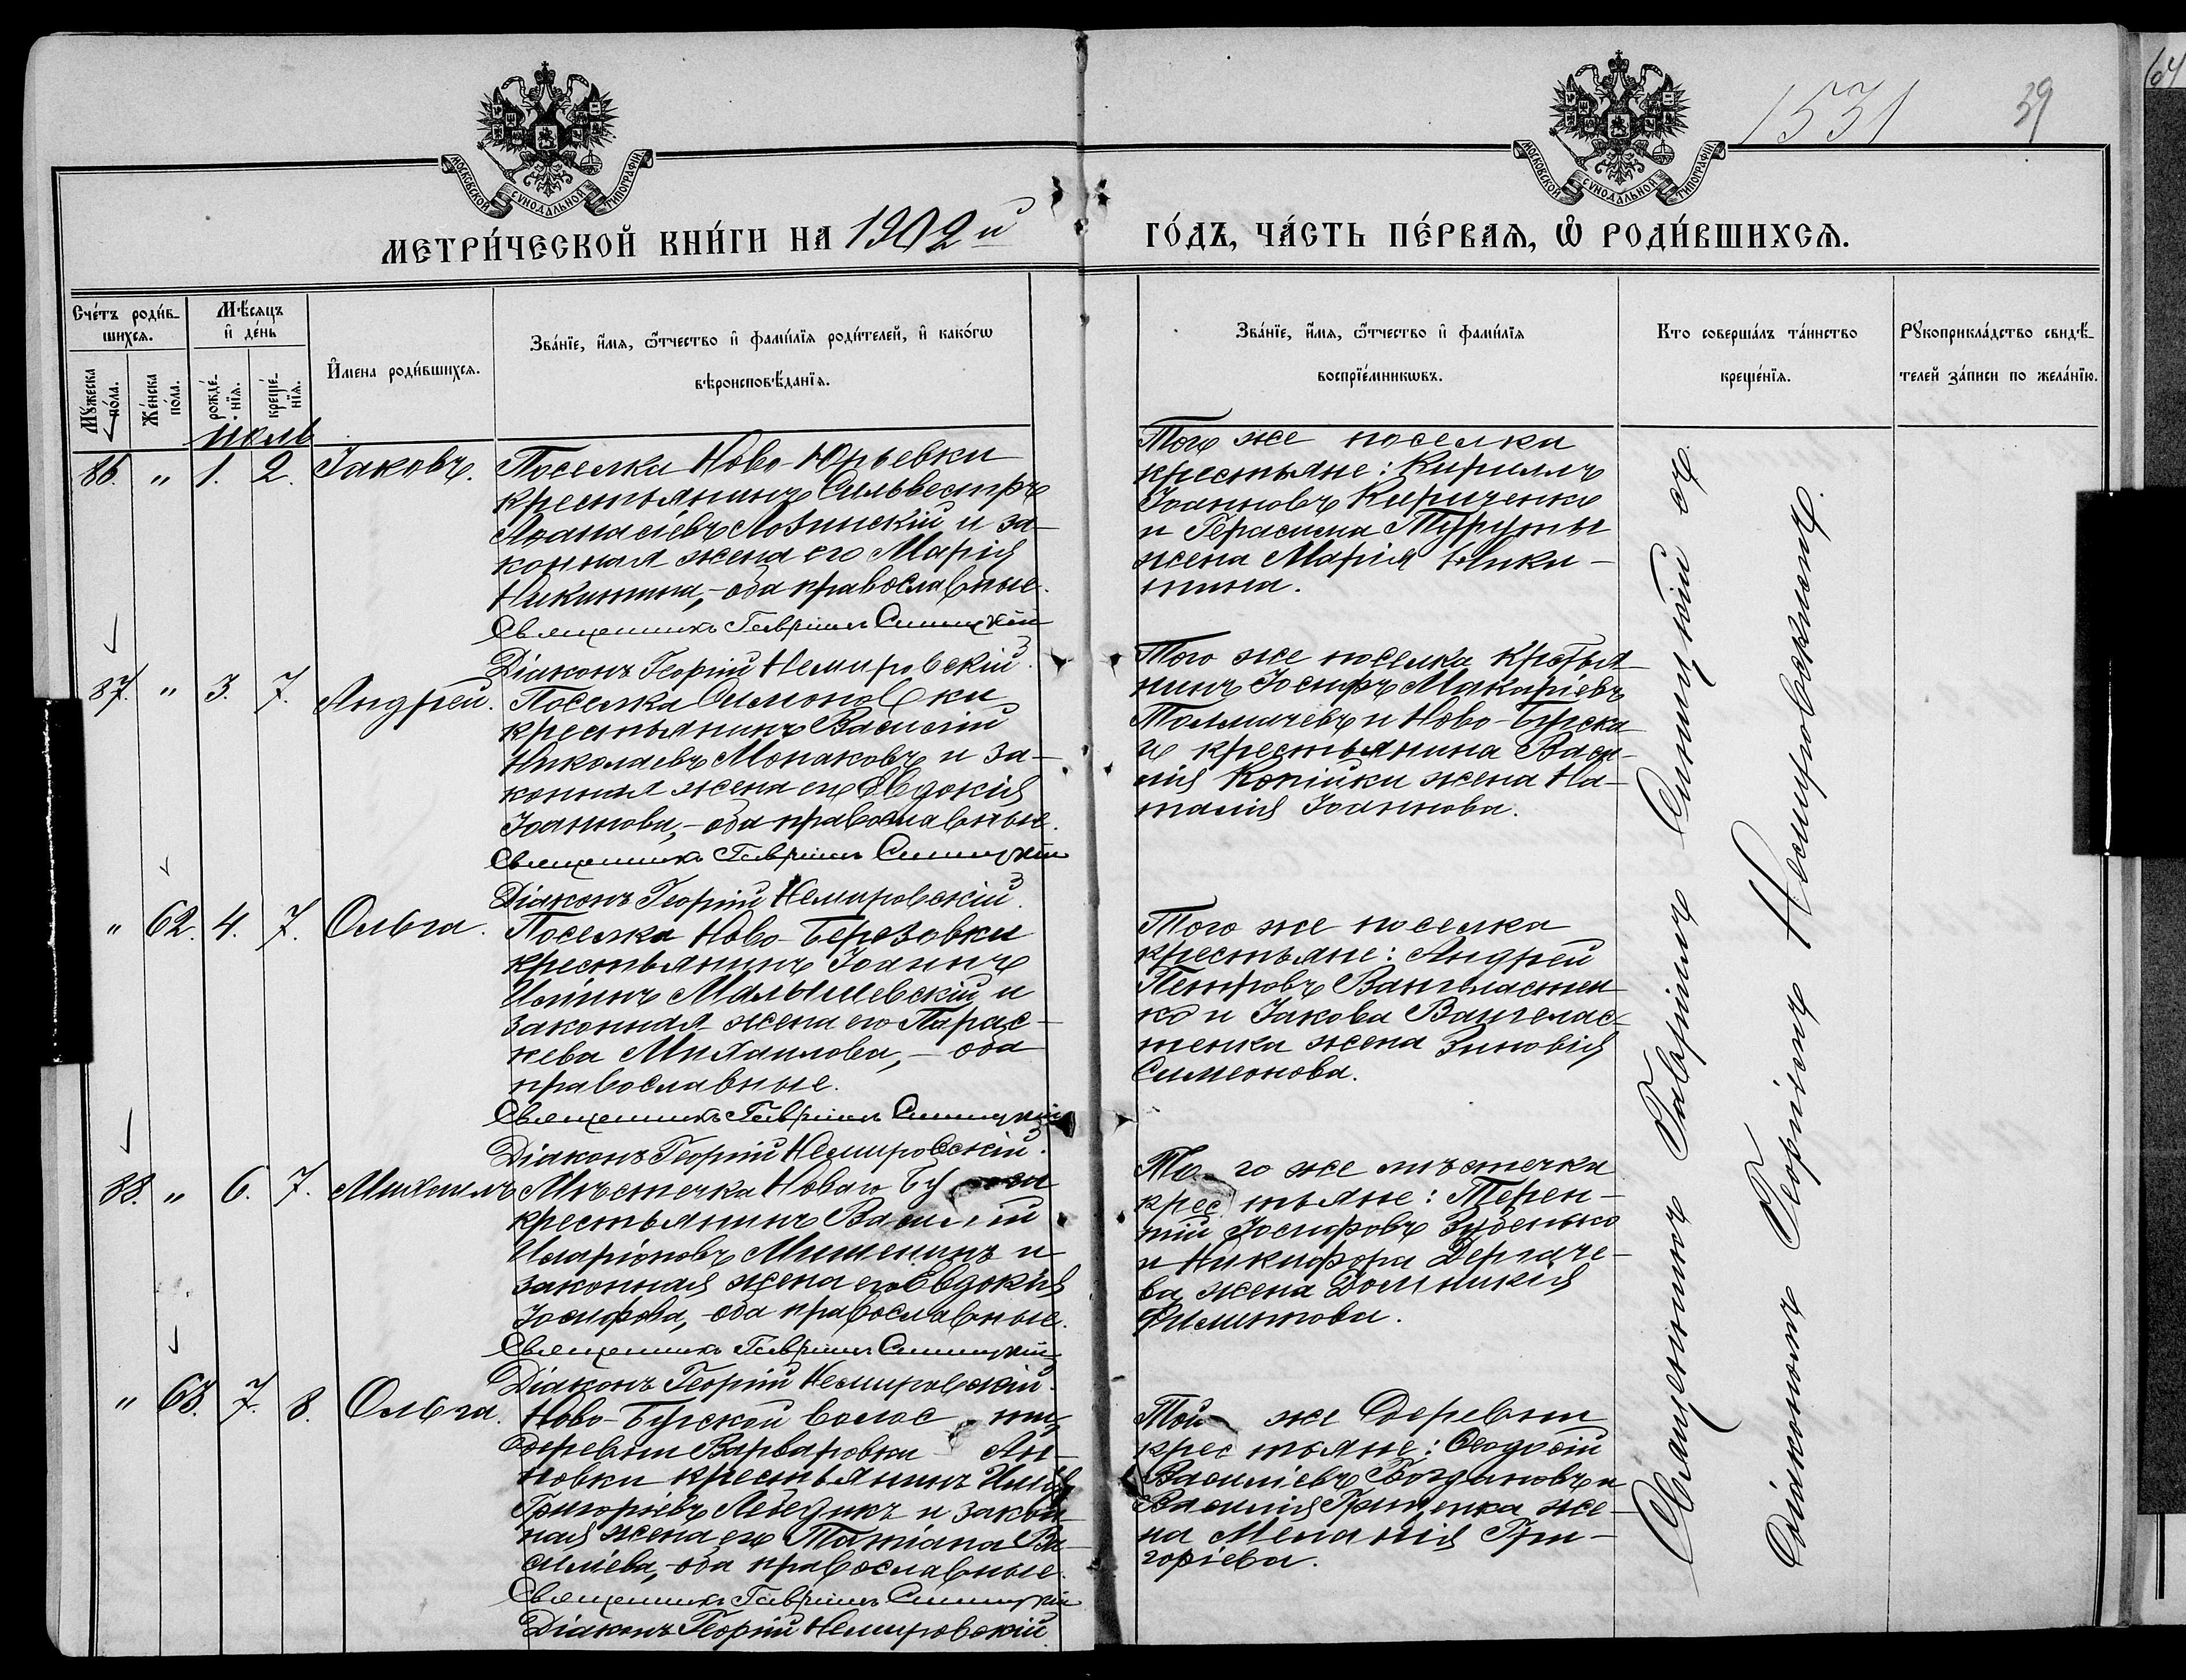 1531
39
64
МОСКОВСКОЙ СУНОДАЛЬНОЙ ТИПОГРАФІИ
МОСКОВСКОЙ СУНОДАЛЬНОЙ ТИПОГРАФІИ
МЕТРИ́ЧЕСКОЙ КНИ́ГИ НА 1902 й ГО́ДЪ, ЧА́СТЬ ПЕ́РВАѦ, Ѡ҆ РОДИ́ВШИХСѦ.
Сче́тъ роди́в-
шихсѧ.
Мꙋ́жеска по́ла.
Же́нска по́ла.
Мѣ́сѧцъ и҆ де́нь
рожде́-нїѧ.
креще́-нїѧ.
И҆мена̀ роди́вшихсѧ.
Зва́нїе, и҆́мѧ, ѻ҆́тчество и҆ фами́лїѧ роди́телей, и҆ како́гѡ
вѣроисповѣ́данїѧ.
Зва́нїе, и҆́мѧ, ѻ҆́тчество и҆ фами́лїѧ
воспрїе́мникѡвъ.
Кто̀ соверша́лъ та́инство
креще́нїѧ.
Рꙋкоприкла́дство свидѣ́-
телей за́писи по жела́нїю.
Июль
86. " 1. 2. Іаковъ. Поселка Ново-Юрьевки
крестьянинъ Сильвестръ
Аѳанасіевъ Лозинскій и за-
конная жена его Марія
Никитина,-оба православные.
Священникъ Гавріилъ Синицкій
Діаконъ Георгій Немировскій.
Того же поселка
крестьяне: Кириллъ
Іоанновъ Кириченко
и Герасима Туруты
жена Марія Ники-
тина.
87. " 3. 7. Андрей. Поселка Симоновки
крестьянинъ Василій
Николаевъ Монаковъ и за-
конная жена его Евдокія
Іоаннова,-оба православные.
Священникъ Гавріилъ Синицкій
Діаконъ Георгій Немировскій.
Того же поселка крестья-
нинъ Іосифъ Макаріевъ
Толмачевъ и Ново-Бугска-
го крестьянина Васи-
лія Копійки жена На-
талія Іоаннова.
" 62. 4. 7. Ольга. Поселка Ново-Березовки
крестьянинъ Іоаннъ
Иліинъ Малышевскій и
законная жена его Парас-
кева Михаилова,- оба
православные.
Священникъ Гавріилъ Синицкій
Діаконъ Георгій Немировскій.
Того же поселка
крестьяне: Андрей
Петровъ Вангеластен-
ко и Іакова Вангелас-
тенка жена Зиновія
Симеонова.
88. " 6. 7. Михаилъ Мѣстечка Новаго Буга
крестьянинъ Василій
Иларіоновъ Мишенинъ и
законная жена его Евдокія
Іосифова,-оба православные.
Священникъ Гавріилъ Синицкій
Діаконъ Георгій Немировскій.
Того же мѣстечка
крестьяне: Терен-
тій Іосифовъ Зубенько
и Никифора Дергаче-
ва жена Домникія
Филиппова.
" 63. 7. 8. Ольга. Ново-Бугской волости,
деревни Варваровки Ан-
новки крестьянинъ Илія
Григоріевъ Лебедикъ и закон-
ная жена его Татіана Ва-
силіева,-оба православные.
Священникъ Гавріилъ Синицкій
Діаконъ Георгій Немировскій
Той же деревни
крестьяне: Ѳеодосій
Василіевъ Богдановъ и
Василія Гриценка же-
на Меланія Гри-
горіева.
Священникъ Гавріилъ Синицкій съ
Діакономъ Георгіемъ Немировскимъ.